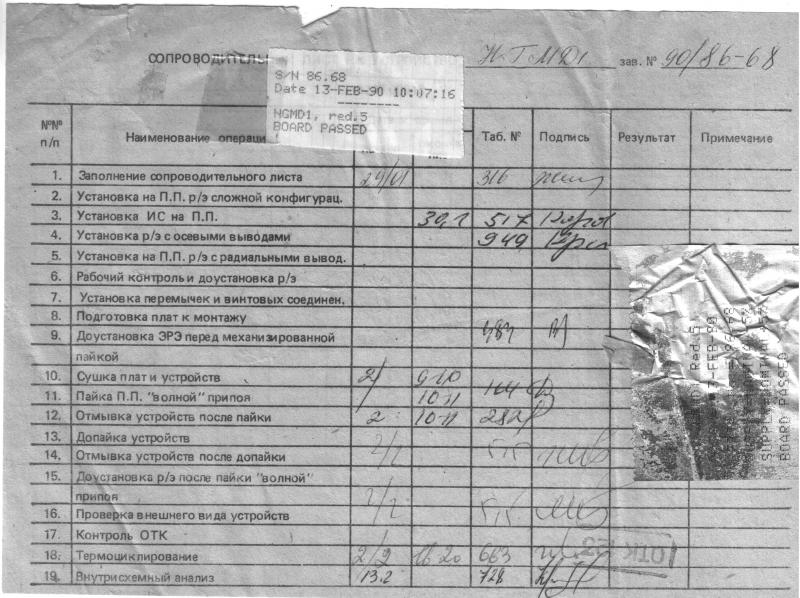 СОПРОВОДИТЕЛЬН НГМД1 зав. № 90/86-68
S/N 86.68
Date 13-FEB-90 10:07:16
NGMD1, red.5
BOARD PASSED
№№ п/п Наименование операци Таб. № Подпись Результат Примечание
1. Заполнение сопроводительного листа 29/01 316
2. Установка на П.П. р/э сложной конфигурац.
3. Установка ИС на П.П. 30,1 517
4. Установка р/э с осевыми выводами 949
5. Установка на П.П. р/э с радиальными вывод.
6. Рабочий контроль и доустановка р/э
7. Установка перемычек и винтовых соединен.
8. Подготовка плат к монтажу
9. Доустановка ЭРЭ перед механизированной
пайкой
10. Сушка плат и устройств 2/ 9-10
11. Пайка П.П. "волной" припоя 10-11 164
12. Отмывка устройств после пайки 2 10-11 282
13. Допайка устройств
14. Отмывка устройств после допайки 2/2
15. Доустановка р/э после пайки "волной"
припоя
16. Проверка внешнего вида устройств 2/2
17. Контроль ОТК
18. Термоциклирование 2/2 16 20 663
19. Внутрисхемный анализ 13.2 728
Red.5
7-FEB-90
BOARD PASSED
ОТК